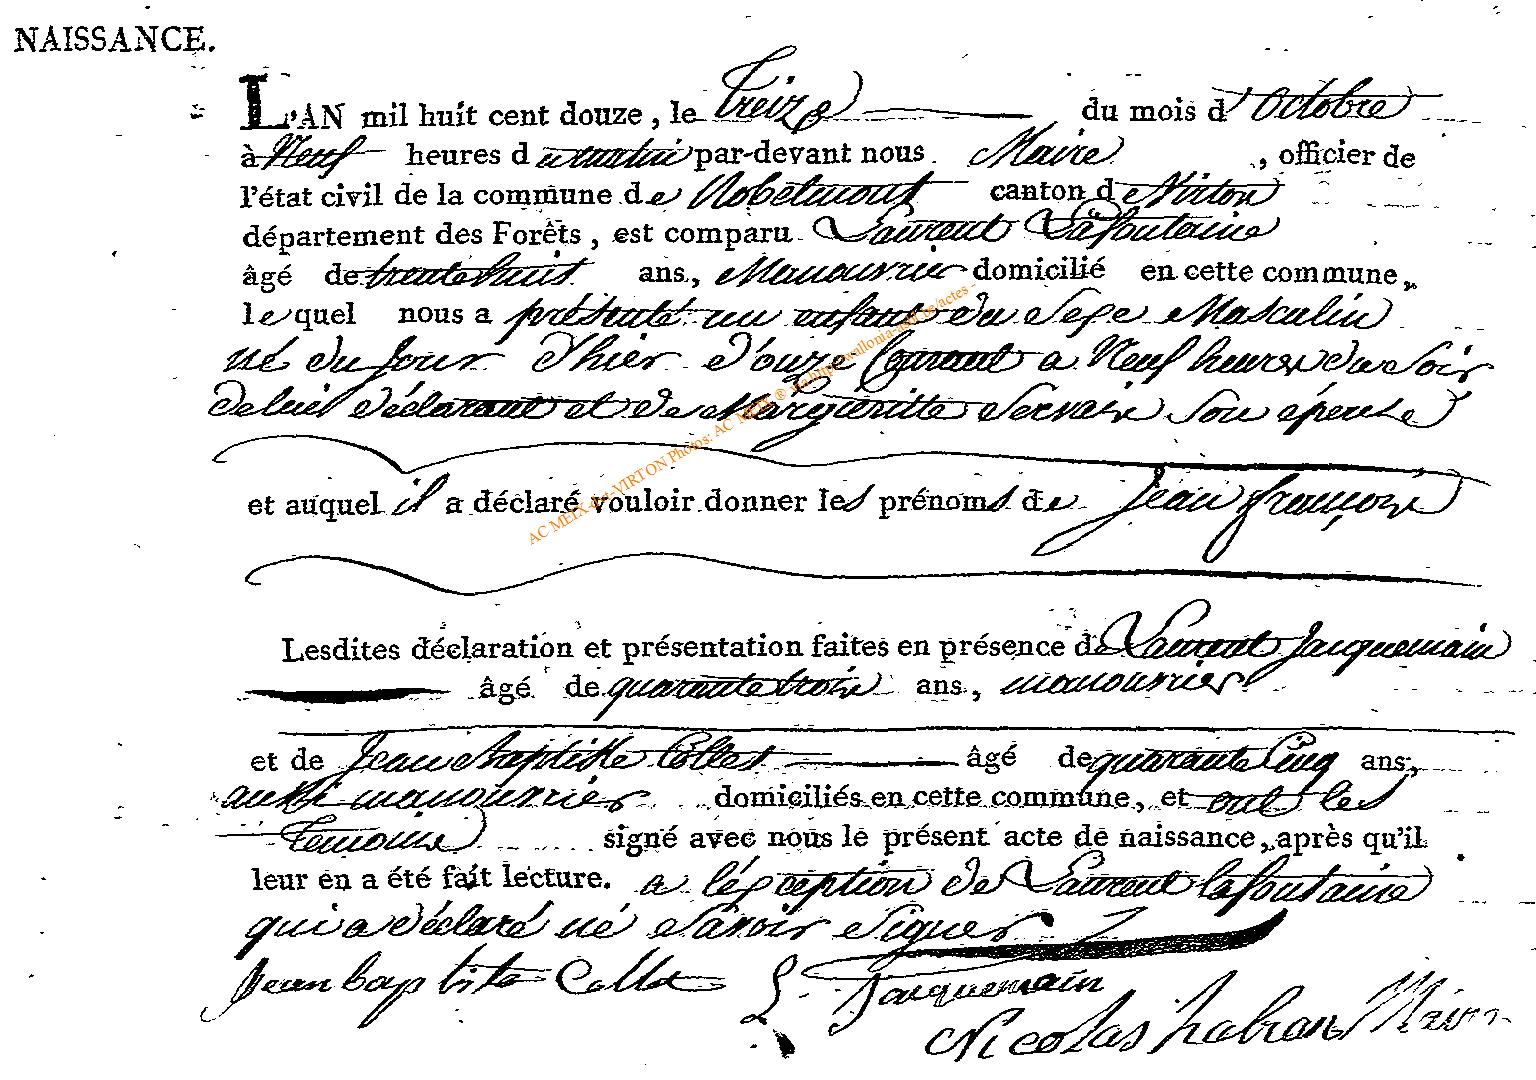 NAISSANCE.
L'AN mil huit cent douze, le treize du mois d'Octobre
à Neuf heures du matin par-devant nous Maire, officier de
l'état civil de la commune de Robelmont canton de Virton
département des Forêts, est comparu Laurent Lafontaine
âgé de trente huit ans, Manouvrier domicilié en cette commune,
lequel nous a présenté un enfant du Sexe Masculin
né du jour d'hier d'ouze Courant a Neuf heures du Soir
de lui déclarant et de Margueritte Servais Son épouse
et auquel il a déclaré vouloir donner les prénoms de Jean françois
Lesdites déclaration et présentation faites en présence de Laurent Jacquemain
âgé de quarante trois ans, manouvrier
et de Jean baptiste Collet âgé de quarante Cinq ans,
aussi manouvrier domiciliés en cette commune, et ont les
Temoins signé avec nous le présent acte de naissance, après qu'il
leur en a été fait lecture. a léxception de Laurent lafontaine
qui a déclaré né Savoir Signer
Jean baptiste Collet L. Jacquemain
Nicolas habran Maire
AC MEIX-Dt-VIRTON Photos: AC MEIX ®